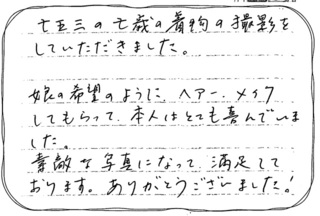 七五三の七歳の着物の撮影を
していただきました。
娘の希望のように、ヘアー、メイク
してもらって、本人はとても喜んでいま
した。
素敵な写真になって、満足して
おります。ありがとうございました!